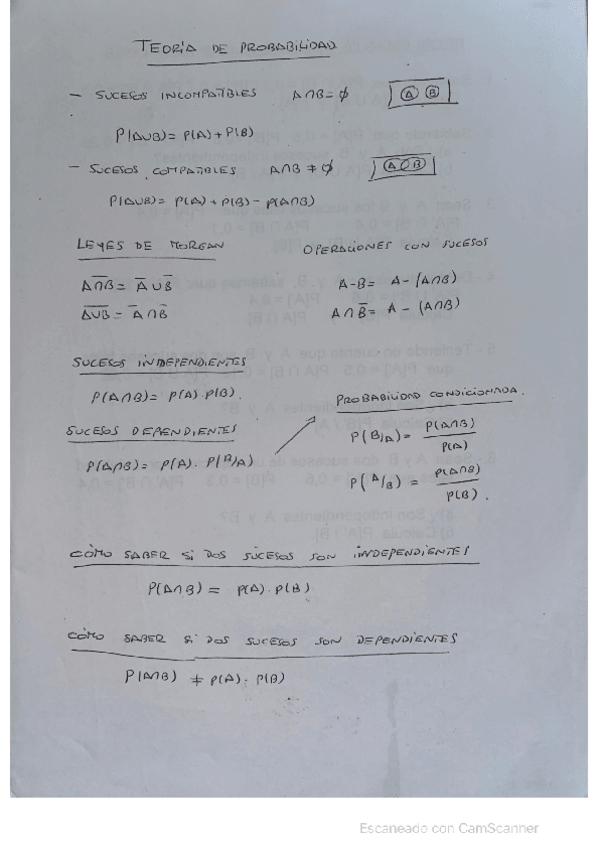 TEORÍA DE PROBABILIDAD
- SUCESOS INCOMPATIBLES A∩B = ∅ A B
P(A∪B) = P(A) + P(B)
- SUCESOS COMPATIBLES A∩B ≠ ∅ A B
P(A∪B) = P(A) + P(B) - P(A∩B)
LEYES DE MORGAN OPERACIONES CON SUCESOS
A̅∩̅B̅ = A̅ ∪ B̅ A-B = A - (A∩B)
A̅∪̅B̅ = A̅ ∩ B̅ A∩B̅ = A - (A∩B)
SUCESOS INDEPENDIENTES
P(A∩B) = P(A) . P(B).
PROBABILIDAD CONDICIONADA.
SUCESOS DEPENDIENTES
P(B/A) = P(A∩B) / P(A)
P(A∩B) = P(A) . P(B/A)
P(A/B) = P(A∩B) / P(B).
CÓMO SABER SI DOS SUCESOS SON INDEPENDIENTES
P(A∩B) = P(A) . P(B)
CÓMO SABER SI DOS SUCESOS SON DEPENDIENTES
P(A∩B) ≠ P(A) . P(B)
Escaneado con CamScanner